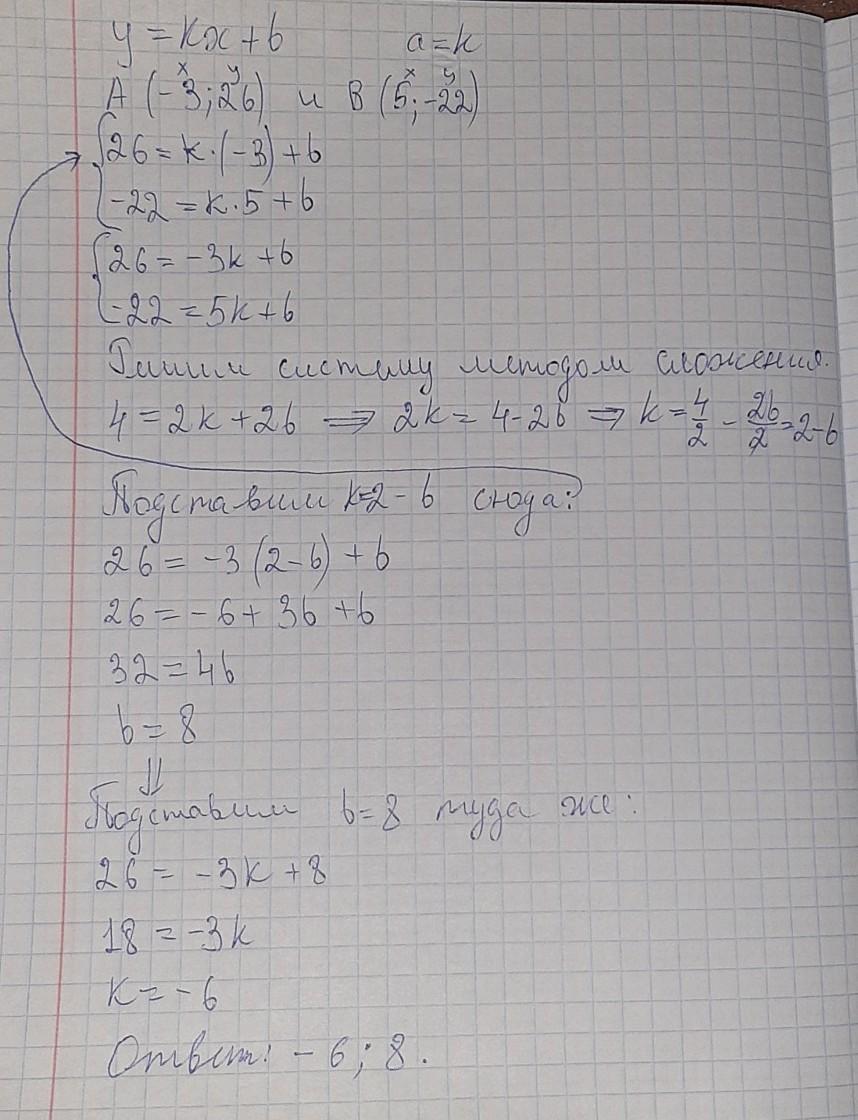 y = kx + b a = k
x y x y
A (-3; 26) и B (5; -22)
26 = k·(-3) + b
-22 = k·5 + b
26 = -3k + b
-22 = 5k + b
Решим систему методом сложения.
4 = 2k + 2b ⇒ 2k = 4 - 2b ⇒ k = 4/2 - 2b/2 = 2 - b
Подставим k=2-b сюда:
26 = -3(2-b) + b
26 = -6 + 3b + b
32 = 4b
b = 8
⇓
Подставим b=8 туда же:
26 = -3k + 8
18 = -3k
k = -6
Ответ: -6; 8.